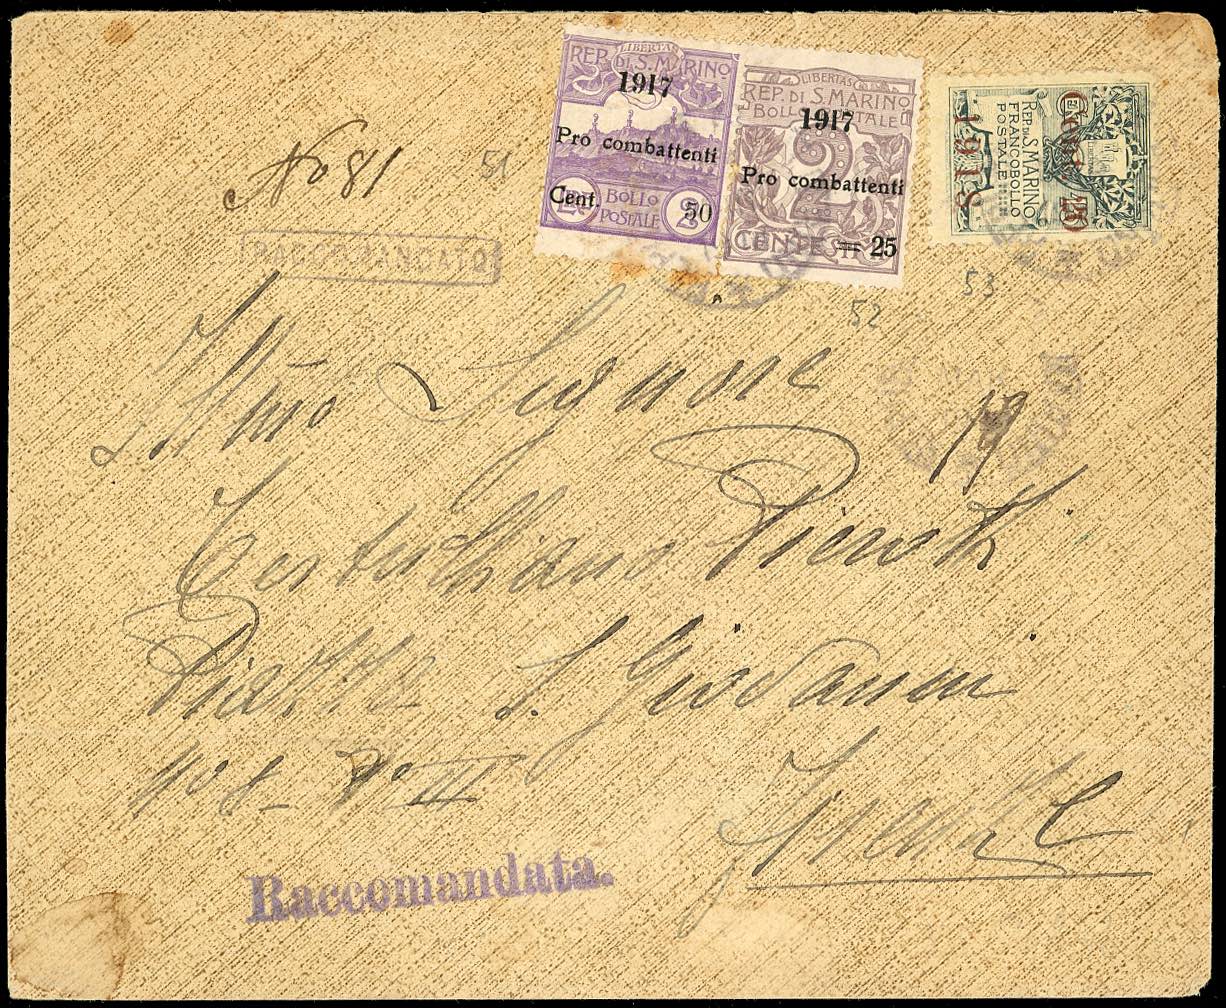 LIBERTAS
REP. DI S. MARINO
1917
Pro combattenti
Cent. 50
BOLLO
POSTALE
2
LIBERTAS
REP. DI S. MARINO
BOLLO POSTALE
1917
2
Pro combattenti
CENTESIMI
= 25
REP. DI S. MARINO
FRANCOBOLLO
POSTALE
Cent. 20
1918
No 81
51
52
53
Ill/mo Signore
19
Piazza S. Giovanni
No 8 - Po III
Firenze
Raccomandata.